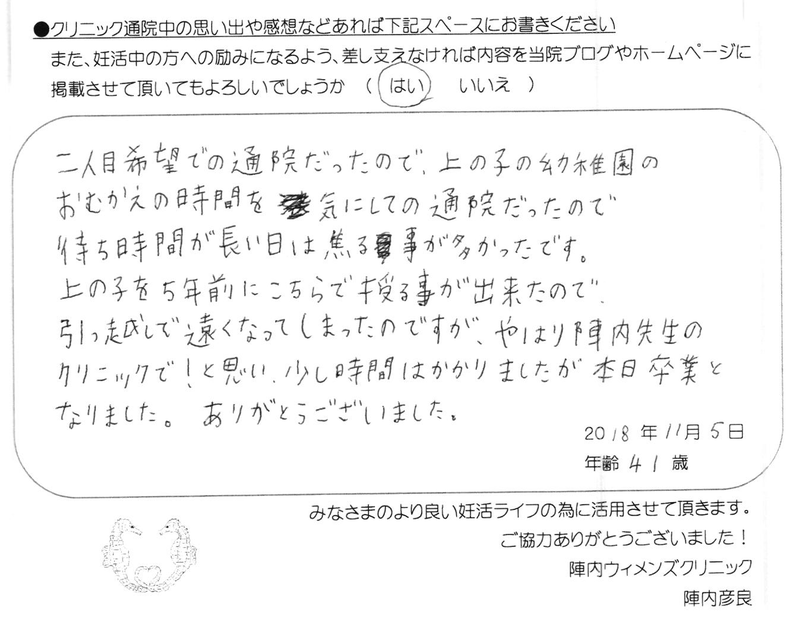 ●クリニック通院中の思い出や感想などあれば下記スペースにお書きください
また、妊活中の方への励みになるよう、差し支えなければ内容を当院ブログやホームページに
掲載させて頂いてもよろしいでしょうか （ はい いいえ ）
二人目希望での通院だったので、上の子の幼稚園の
おむかえの時間を気にしての通院だったので
待ち時間が長い日は焦る事が多かったです。
上の子を5年前にこちらで授る事が出来たので、
引っ越しで遠くなってしまったのですが、やはり陣内先生の
クリニックで！と思い、少し時間はかかりましたが本日卒業と
なりました。 ありがとうございました。
2018年11月5日
年齢41歳
みなさまのより良い妊活ライフの為に活用させて頂きます。
ご協力ありがとうございました！
陣内ウィメンズクリニック
陣内彦良